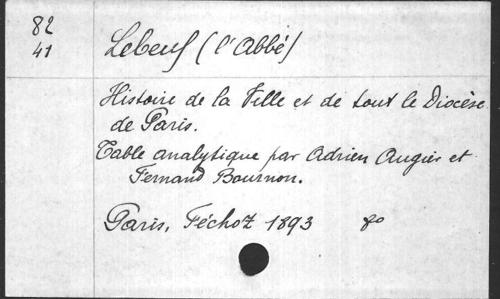 82
41
Lebeuf (l'Abbé)
Histoire de la Ville et de tout le Diocèse
de Paris.
Table analytique par Adrien Augier et
Fernand Bournon.
Paris, Féchoz 1893 8o